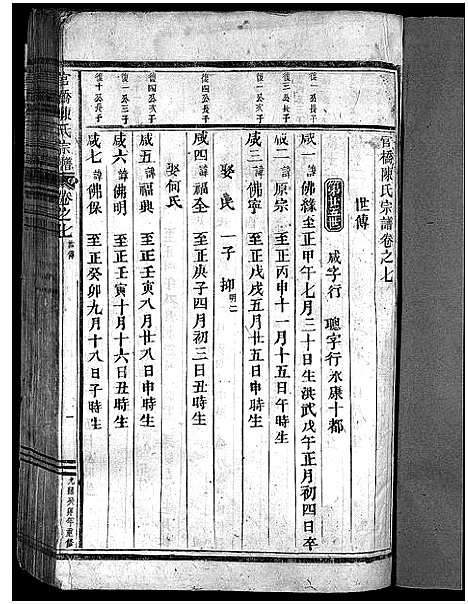 官橋陳氏宗譜卷之七
世傳
第廿五世 咸字行 聰字行永康十都
後一公長子
咸一 諱佛緣至正甲午七月三十日生洪武戊午正月初四日卒
後三公長子
咸二 諱原宗 至正丙申十一月十五日午時生
後一公次子
咸三 諱佛寧 至正戊戌五月廿五日申時生
娶 氏 一子 抑明二
後四公長子
咸四 諱福全 至正庚子四月初三日丑時生
娶何氏
後四公次子
咸五 諱福興 至正壬寅八月廿八日申時生
後一公三子
咸六 諱佛明 至正壬寅十月十六日丑時生
後十公長子
咸七 諱佛保 至正癸卯九月十八日子時生
官橋陳氏宗譜 卷之七 世傳
一
年重修